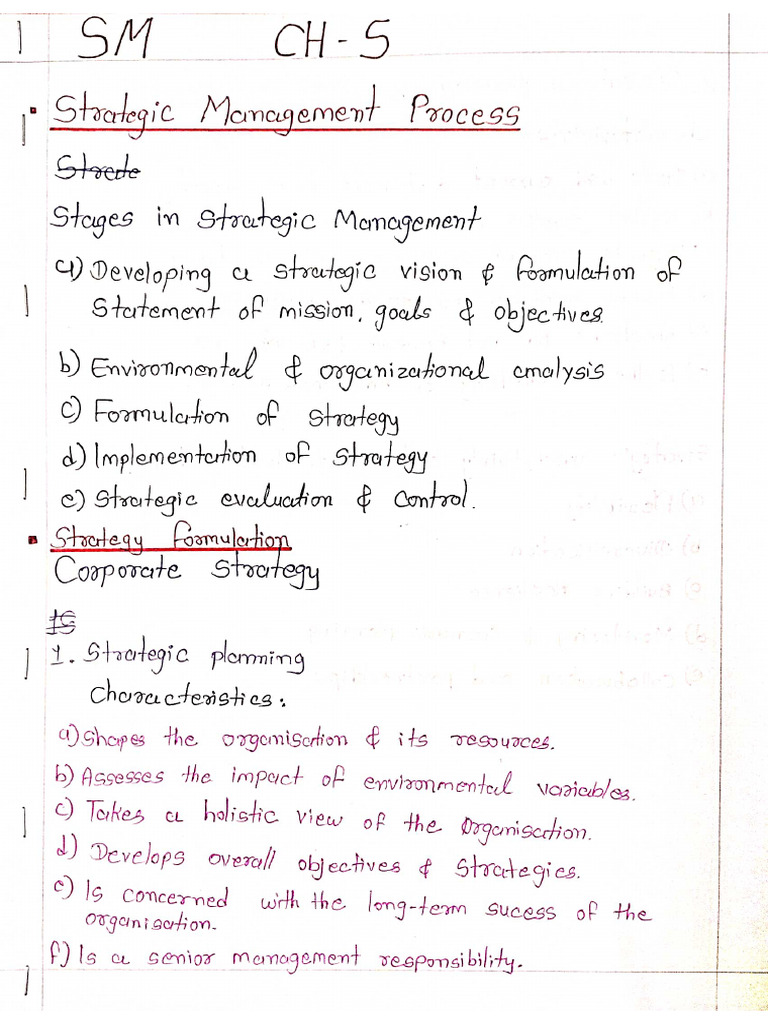 SM CH-5
Strategic Management Process
Strate
Stages in Strategic Management
a) Developing a strategic vision & formulation of
Statement of mission, goals & objectives.
b) Environmental & organizational analysis
c) Formulation of strategy
d) Implementation of strategy
e) Strategic evaluation & control.
Strategy formulation
Corporate Strategy
1. Strategic planning
Characteristics:
a) Shapes the organisation & its resources.
b) Assesses the impact of environmental variables.
c) Takes a holistic view of the Organisation.
d) Develops overall objectives & strategies.
e) Is concerned with the long-term sucess of the
organisation.
f) Is a senior management responsibility.